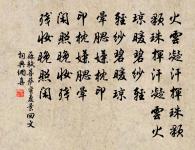 火雲凝汗揮珠顆
顆珠揮汗凝雲火
瓊暖碧紗輕
輕紗碧暖瓊
暈腮嫌枕印
印枕嫌腮暈
閑照晚妝殘
殘妝晚照閑
蘇軾菩薩蠻夏景回文
詞典網